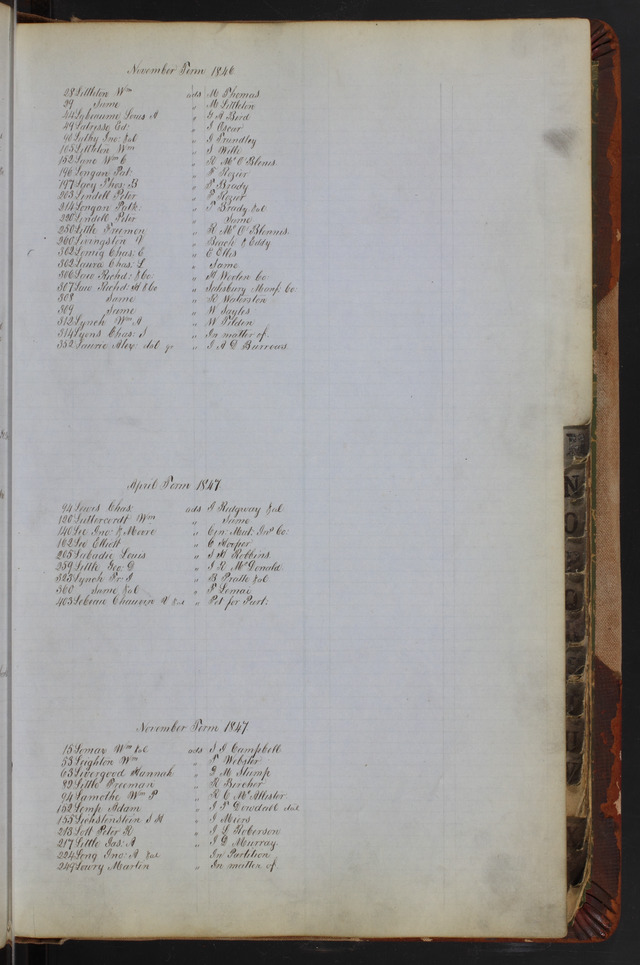 November Term 1846
28 Littleton Wm ads M Thomas
29 Same " M Littleton
44 Labeaume Louis A " G A Bird
49 Labrisse Ed: " J Oscar
90 Lathy Jno: &al " J Trundley
105 Littleton Wm " S Wells
152 Lane Wm C " R Mc O Blenis
196 Longan Pat: " F Rozier
197 Lacy Thos: B " P Brady
203 Lindell Peter " F Rozier
214 Longan Patk: " P Brady &al
220 Lindell Peter " Same
250 Little Freemon " R Mc O Blennis
260 Livingston " Beach & Eddy
262 Lemig Chas: E " E Ellis
302 Laura Chas: L " Same
306 Low Richd: &Co " H Worten Co:
307 Low Richd: H &Co " Salisbury Manf Co:
308 Same " R Waterston
309 Same " W Sayles
312 Lynch Wm A " W Tilden
314 Lyons Chas: S " In matter of
352 Laurie Alex: " J A D Burrows
April Term 1847
94 Lewis Chas: ads J Ridgway &al
120 Luttercordt Wm " Same
140 Lee Jno: & Moore " Cin: Mut: Ins Co:
162 Lee Elliott " C Hooper
205 Labadie Louis " S H Robbins
259 Little Geo: G " J R McDonald
323 Lynch Pr: J " B Pratte &al
360 Same &al " P Lomai
403 Lebeau Chauvin V &al " Pet for Part:
November Term 1847
15 Lomax Wm &al ads S J Campbell
53 Leighton Wm " P Webster
63 Livergood Hannah " G M Stump
89 Little Freeman " R Beecher
94 Lamothe Wm P " R C McAllister
152 Lemp Adam " J P Dowdall &al
155 Lichstenstein S H " J Miers
213 Lott Peter R " J L Roberson
217 Little Jas: A " J D Murray
224 Long Jno: A &al " In Partition
249 Lowry Marlon " In matter of